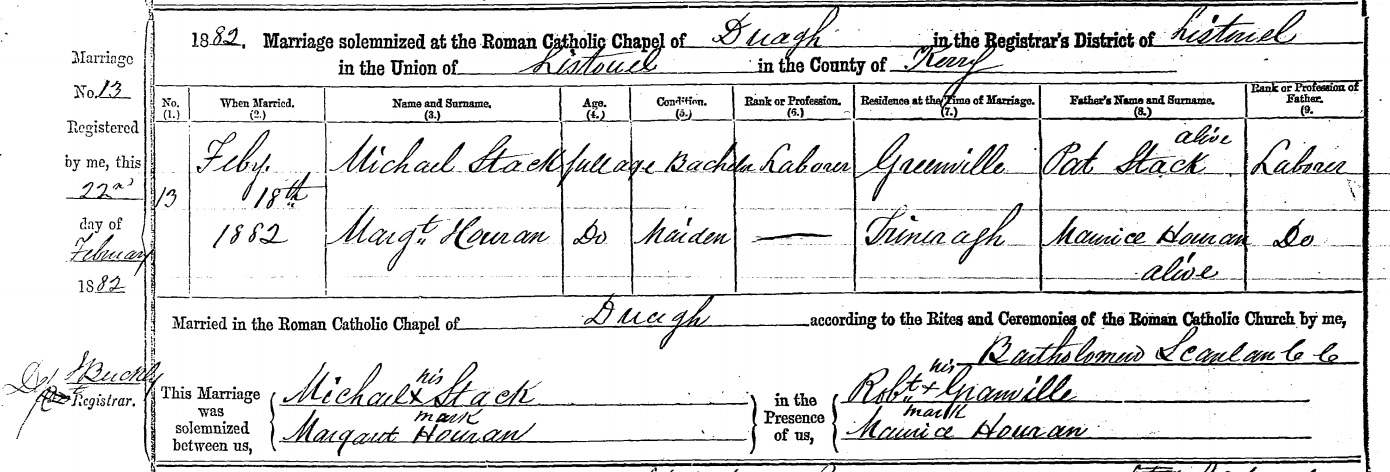 1882. Marriage solemnized at the Roman Catholic Chapel of Duagh in the Registrar's District of Listowel
in the Union of Listowel in the County of Kerry
Marriage
No. 13
Registered
by me, this
22nd
day of
February
1882
No. When Married. Name and Surname. Age. Condition. Rank or Profession. Residence at the Time of Marriage. Father's Name and Surname. Rank or Profession of Father.
(1.) (2.) (3.) (4.) (5.) (6.) (7.) (8.) (9.
alive
Feby. Michael Stack full age Bachelor Laborer Greenville Pat Stack Laborer
13 18th
1882 Margt. Houran Do Maiden — Trineragh Maurice Houran Do
alive
Married in the Roman Catholic Chapel of Duagh according to the Rites and Ceremonies of the Roman Catholic Church by me,
Bartholomew Scanlan C C
Buckley
Registrar.
This Marriage was solemnized between us,
his
Michael x Stack
mark
Margaret Houran
in the Presence of us,
his
Robt. + Granville
mark
Maurice Houran